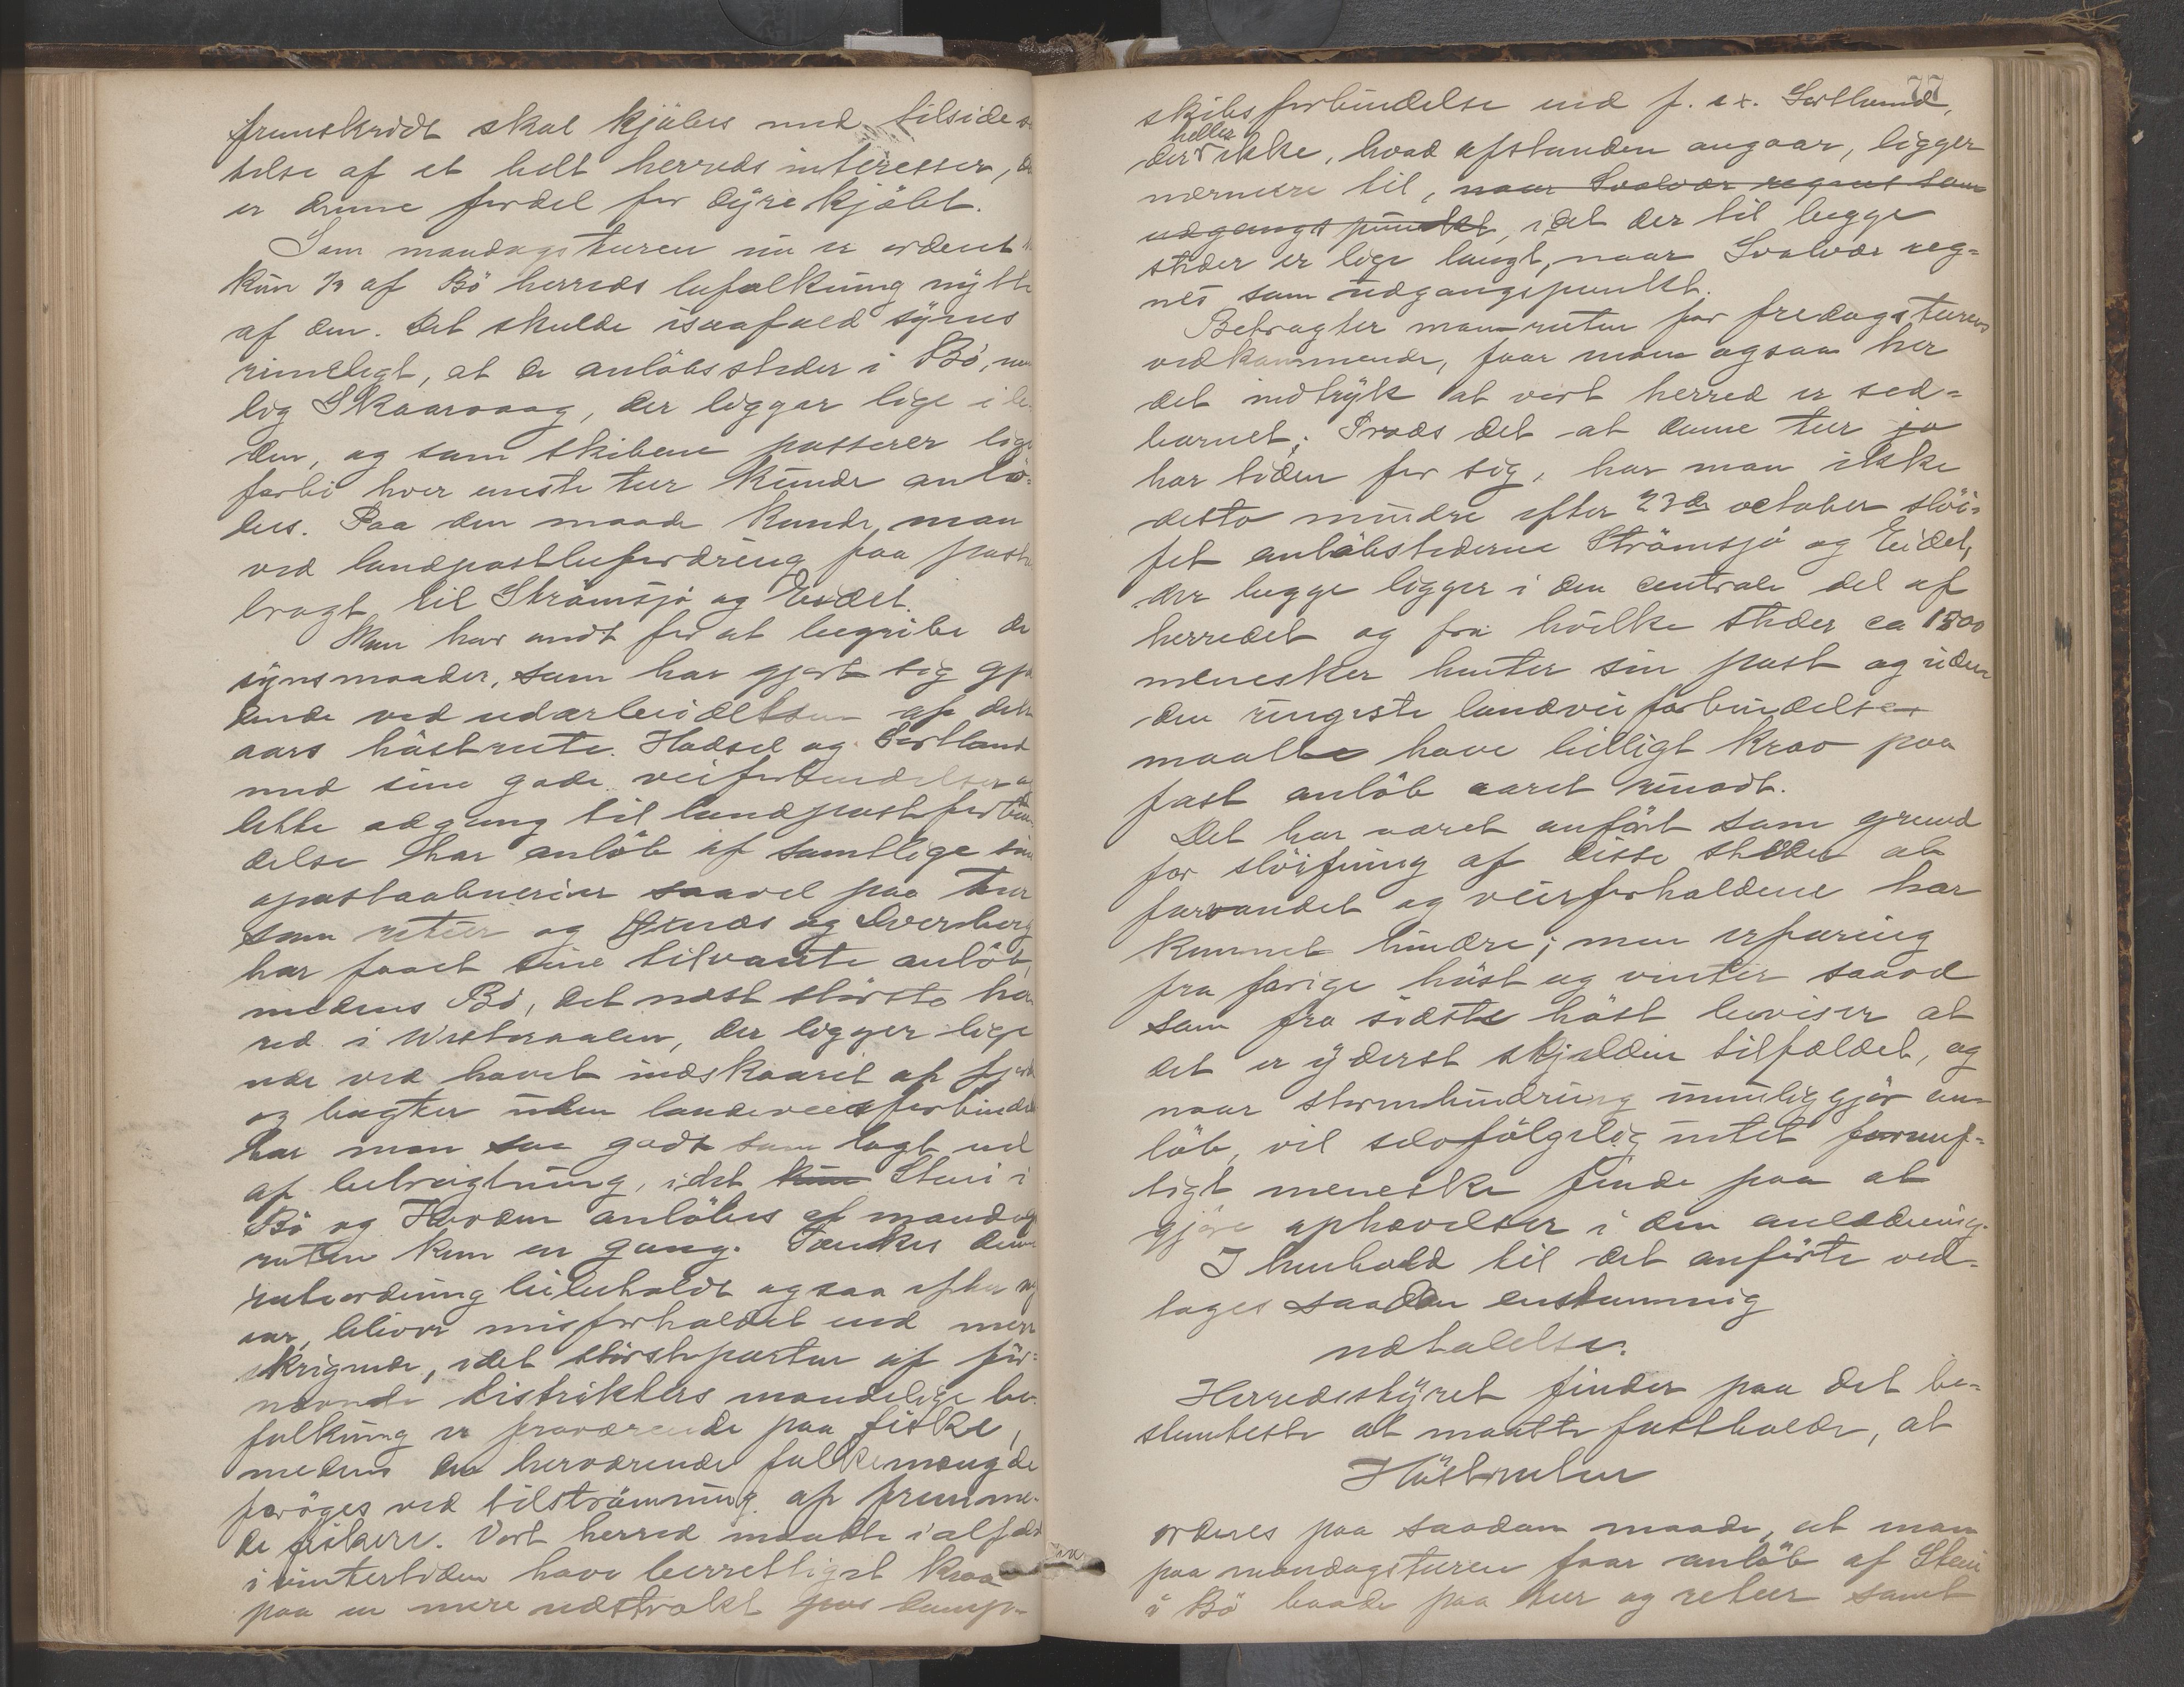 fremskridt skal kjöbes med tilside sæ
telse af et helt herreds interesser, da
er denne fordel for dyrekjöbt.
Som mandagsturen nu er ordent
kun 1/3 af Bö herreds befolkning nytte
af den. Det skulde isaafald synes
rimeligt, at de anlöbssteder i Bö, nem
lig Skaarvaag, der ligger lige i le
den, og som skibene passerer lige
forbi hver eneste tur kunde anlö=
bes. Paa den maade kunde man
ved landpostbefordring faa post
bragt til Strömsjö og Eidet.
Man har ondt for at begribe de
synsmaader, som har gjort sig gjæ
dende ved udarbeidelsen af dette
aars höstrute. Hadsel og Sortland
med sine gode veiforbindelser og
lette adgang til landpostforbin
delse har anlöb af samtlige sin
e postaabnerier saavel paa tur
som retur og og Sverberg
har faaet sine tilvante anlöb,
medens Bö, det næst störste her
red i Vesteraalen, der ligger lige
ude ved havet indskaaret af fjord
og bugter uden landeveisforbindel
har man saa godt som lagt ud
af betragtning, idet kun Steni i
Bö og Hovden anlöbes af mandags
ruten kun en gang. Tænkes denne
ruteordning bibeholdt ogsaa efter ny
aar, bliver misforholdet end mere
skrigende, idet störsteparten af för=
nævnte distrikters mandelige be=
folkning er fraværende paa fiske,
medens den herværende folkemængde
foröges ved tilströmning af fremme=
de fiskere. Vort herred maatte ialfald
i vintertiden have berettiget krav
paa en mere udstrakt damp-
77
skibsforbindelse end f. ex. Sortland,
heller
der ikke, hvad afstanden angaar, ligger
nærmere til, naar Svolvær regnes som
udgangspunkt, idet der til begge
steder er lige langt, naar Svolvær reg=
nes som udgangspunkt.
Betragter man ruten for fredagsturens
vedkommende, faar man ogsaa her
det indtryk at vort herred er sted=
barnet; Trods det at denne tur jo
har tiden for sig, har man ikke
desto mindre efter 23de october slöi=
fet anlöbstederne Strömsjö og Eidet,
der begge ligger i den centrale del af
herredet og fra hvilke steder ca 1500
menesker henter sin post og uden
den ringeste landveiforbindelse
maatte have billigt krav paa
fast anlöb aaret rundt.
Det har været anfört som grund
for slöifning af disse steder at
farvandet og veirforholdene har
kunnet hindre; men erfaring
fra forige höst og vinter saavel
som fra sidste höst beviser at
det er yderst skjelden tilfældet, og
naar stormhindring umuliggjör an
löb, vil selvfölgelig intet fornuf=
tigt meneske finde paa at
gjöre ophævelser i den anledning.
I henhold til det anförte ved=
tages saadan enstemmig
udtalelse.
Herredsstyret finder paa det be=
stemteste at maatte fastholde, at
Höstruten
ordnes paa saadan maade, at man
paa mandagsturen faar anlöb af Steni
i Bö baade paa tur og retur samt